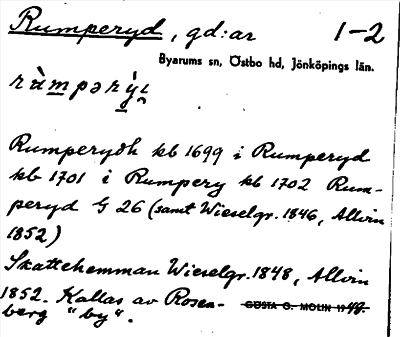 Rumperyd, gd:ar 1-2
Byarums sn, Östbo hd, Jönköpings län.
Rumperydh kb 1699 i Rumperyd
kb 1701 i Rumpery kb 1702 Rum-
peryd G 26 (samt Wieselgr. 1846, Allvin
1852)
Skattehemman Wieselgr. 1848, Allvin
1852. Kallas av Rosen-
berg "by". GÖSTA G. MOLIN 1949.